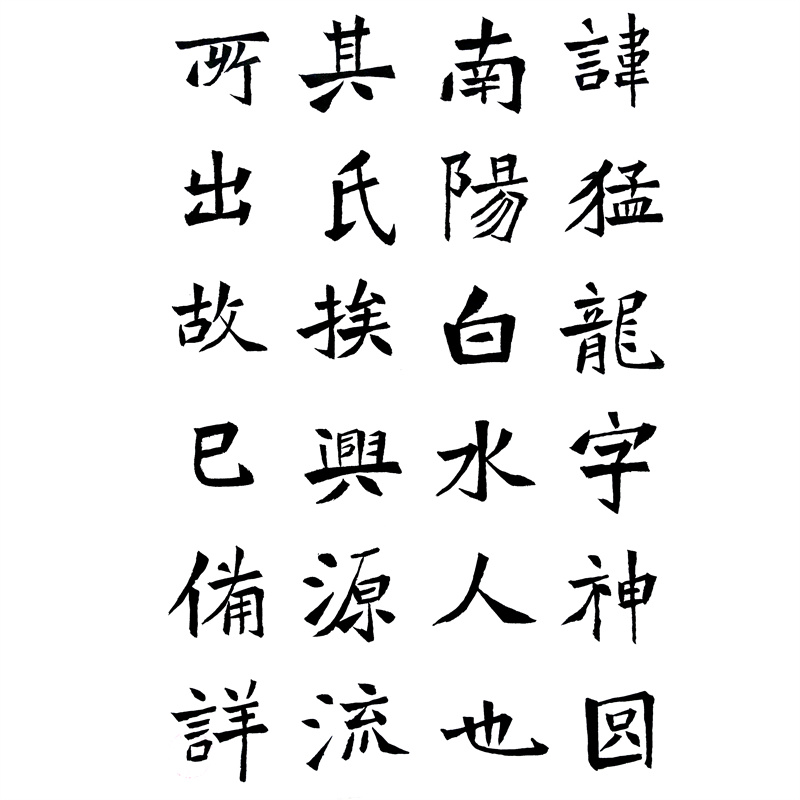 諱猛龍字神囧
南陽白水人也
其氏挨興源流
所出故已備詳